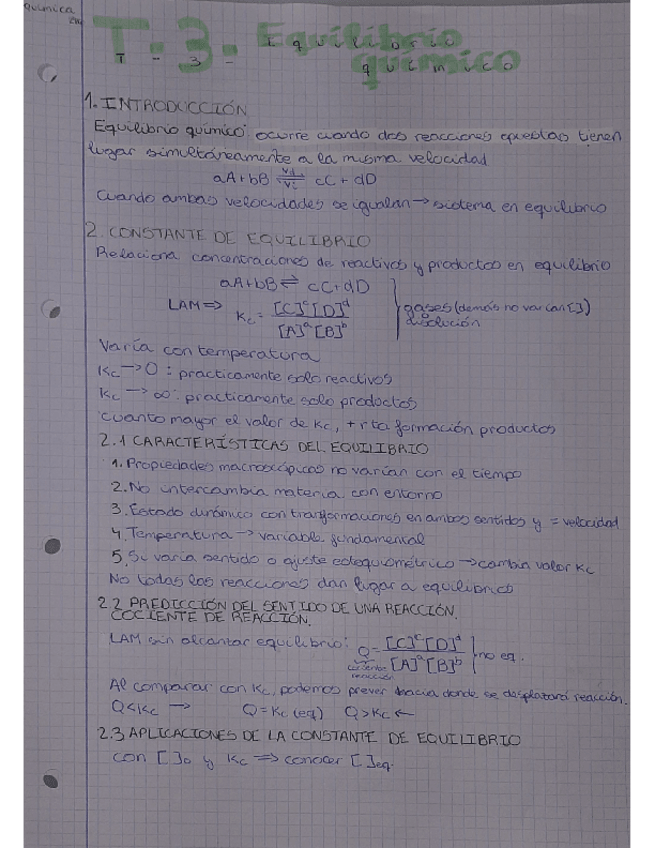 Química
T-3- Equilibrio
químico
1. INTRODUCCIÓN
Equilibrio químico: ocurre cuando dos reacciones opuestas tienen
lugar simultáreamente a la misma velocidad
aA+bB ⇌ cC+dD
Cuando ambas velocidades se igualan → sistema en equilibrio
2. CONSTANTE DE EQUILIBRIO
Relaciona concentraciones de reactivos y productos en equilibrio
aA+bB ⇌ cC+dD
LAM ⇒ Kc = [C]^c [D]^d / [A]^a [B]^b
gases (demás no varían [ ])
o
disolución
Varía con temperatura
Kc → 0 : practicamente solo reactivos
Kc → ∞ : practicamente solo productos
Cuanto mayor el valor de Kc, + rta formación productos
2.1 CARACTERÍSTICAS DEL EQUILIBRIO
1. Propiedades macroscópicas no varían con el tiempo
2. No intercambia materia con entorno
3. Estado dinámico con transformaciones en ambos sentidos y = velocidad
4. Temperatura → variable fundamental
5. Si varía sentido o ajuste estequiométrico → cambia valor Kc
No todas las reacciones dan lugar a equilibrios
2.2 PREDICCIÓN DEL SENTIDO DE UNA REACCIÓN.
COCIENTE DE REACCIÓN.
LAM sin alcanzar equilibrio: Q = [C]^c [D]^d / [A]^a [B]^b | no eq.
cociente
reacción
Al comparar con Kc, podemos prever hacia donde se desplazará reacción.
Q<Kc → Q=Kc (eq) Q>Kc ←
2.3 APLICACIONES DE LA CONSTANTE DE EQUILIBRIO
con [ ]o y Kc ⇒ conocer [ ]eq.